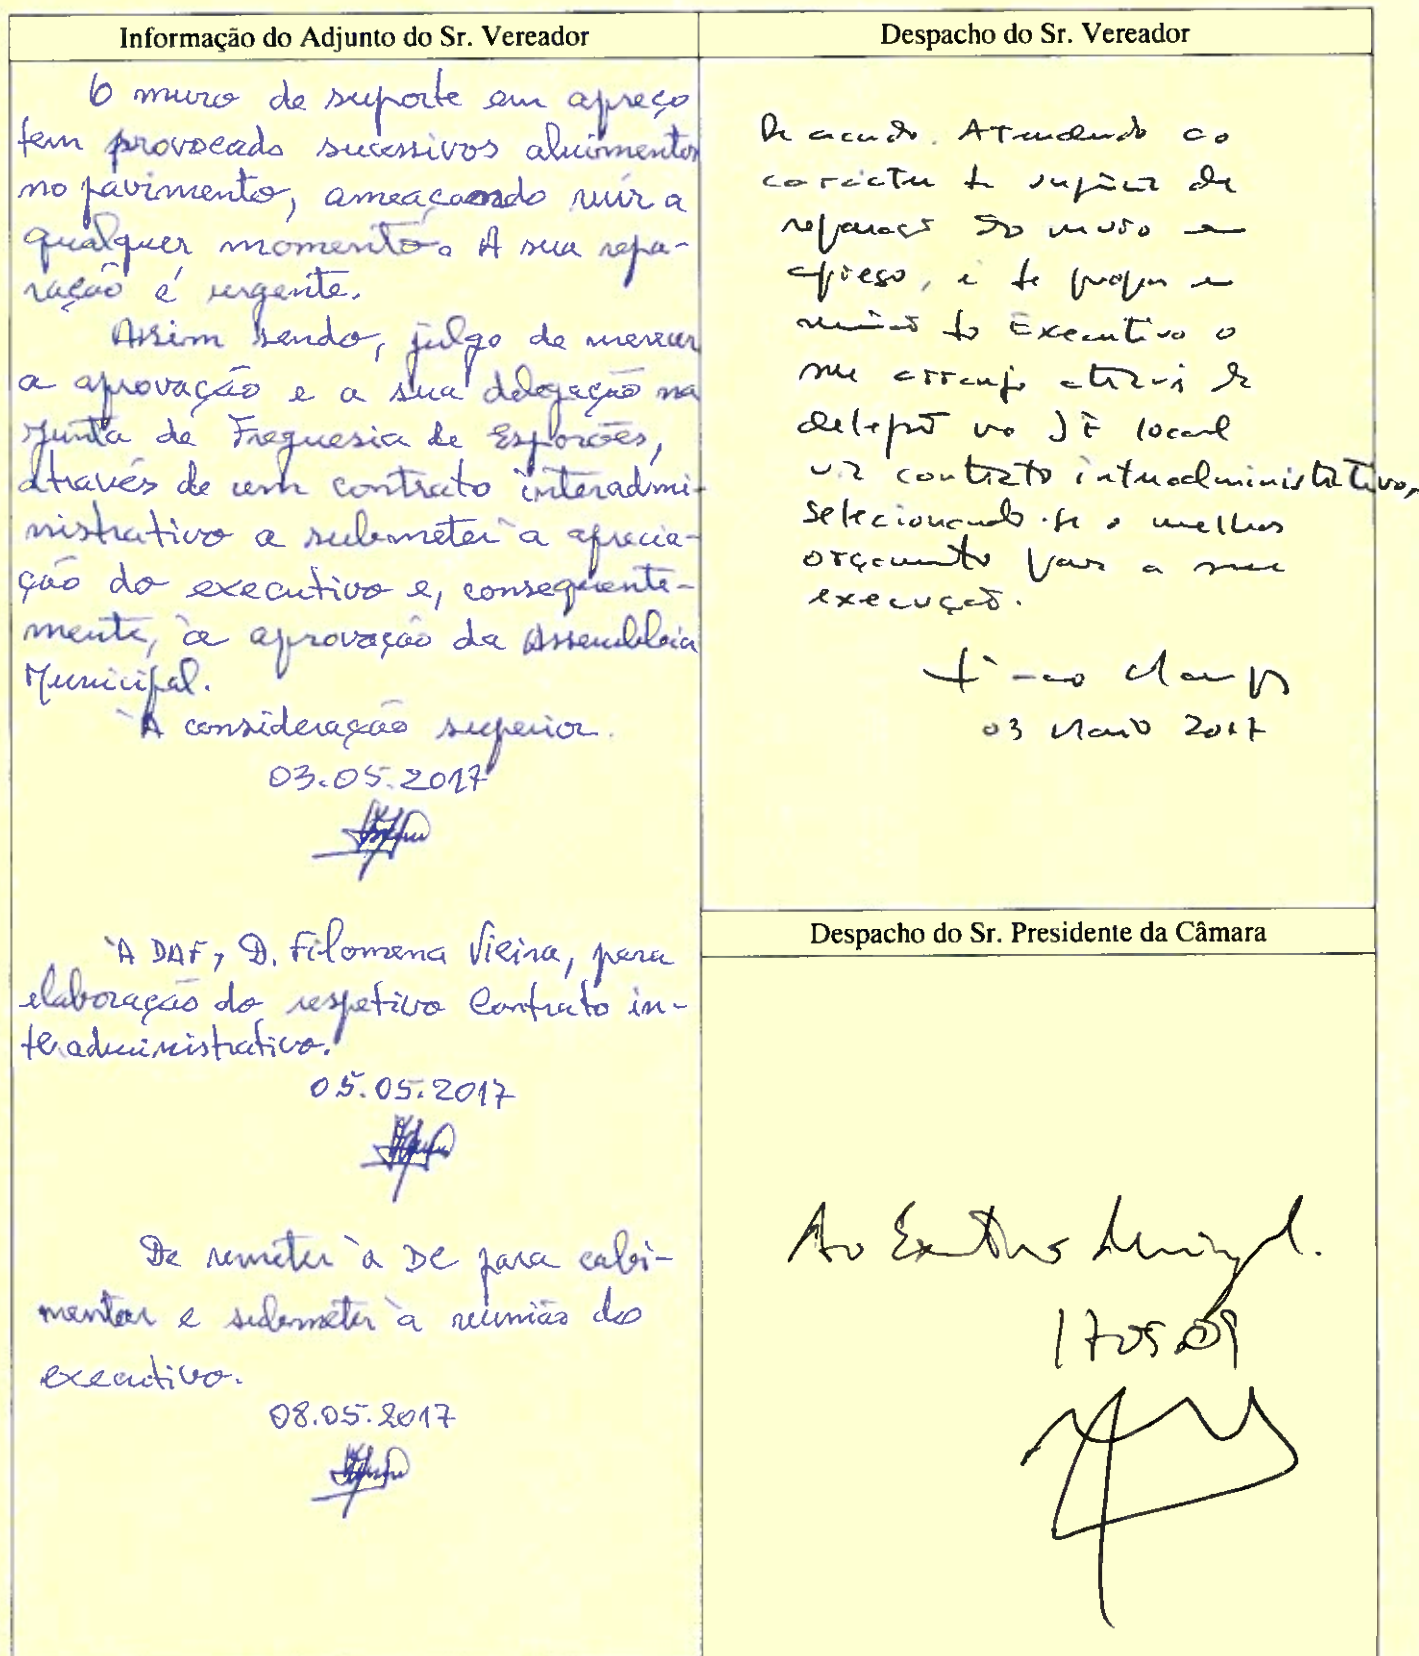 Informação do Adjunto do Sr. Vereador
O muro de suporte em apreço
tem provocado sucessivos aluimentos
no pavimento, ameaçando ruir a
qualquer momento. A sua repa-
ração é urgente.
Assim sendo, julgo de merecer
a aprovação e a sua delegação na
Junta de Freguesia de Esporões,
através de um contrato interadmi-
nistrativo a submeter à aprecia-
ção do executivo e, consequente-
mente, à aprovação da Assembleia
Municipal.
À consideração superior.
03.05.2017
À DAF, D. Filomena Vieira, para
elaboração do respetivo Contrato in-
teradministrativo.
05.05.2017
De remeter à DC para cabi-
mentar e submeter à reunião do
executivo.
08.05.2017
Despacho do Sr. Vereador
De acordo. Atendendo ao
carácter de urgência de
reparação do muro em
apreço, é de propor em
reunião do Executivo o
seu arranjo através de
delegação na JF local
via contrato interadministrativo,
selecionando-se o melhor
orçamento para a sua
execução.
03 Maio 2017
Despacho do Sr. Presidente da Câmara
Ao Executivo Municipal.
170509